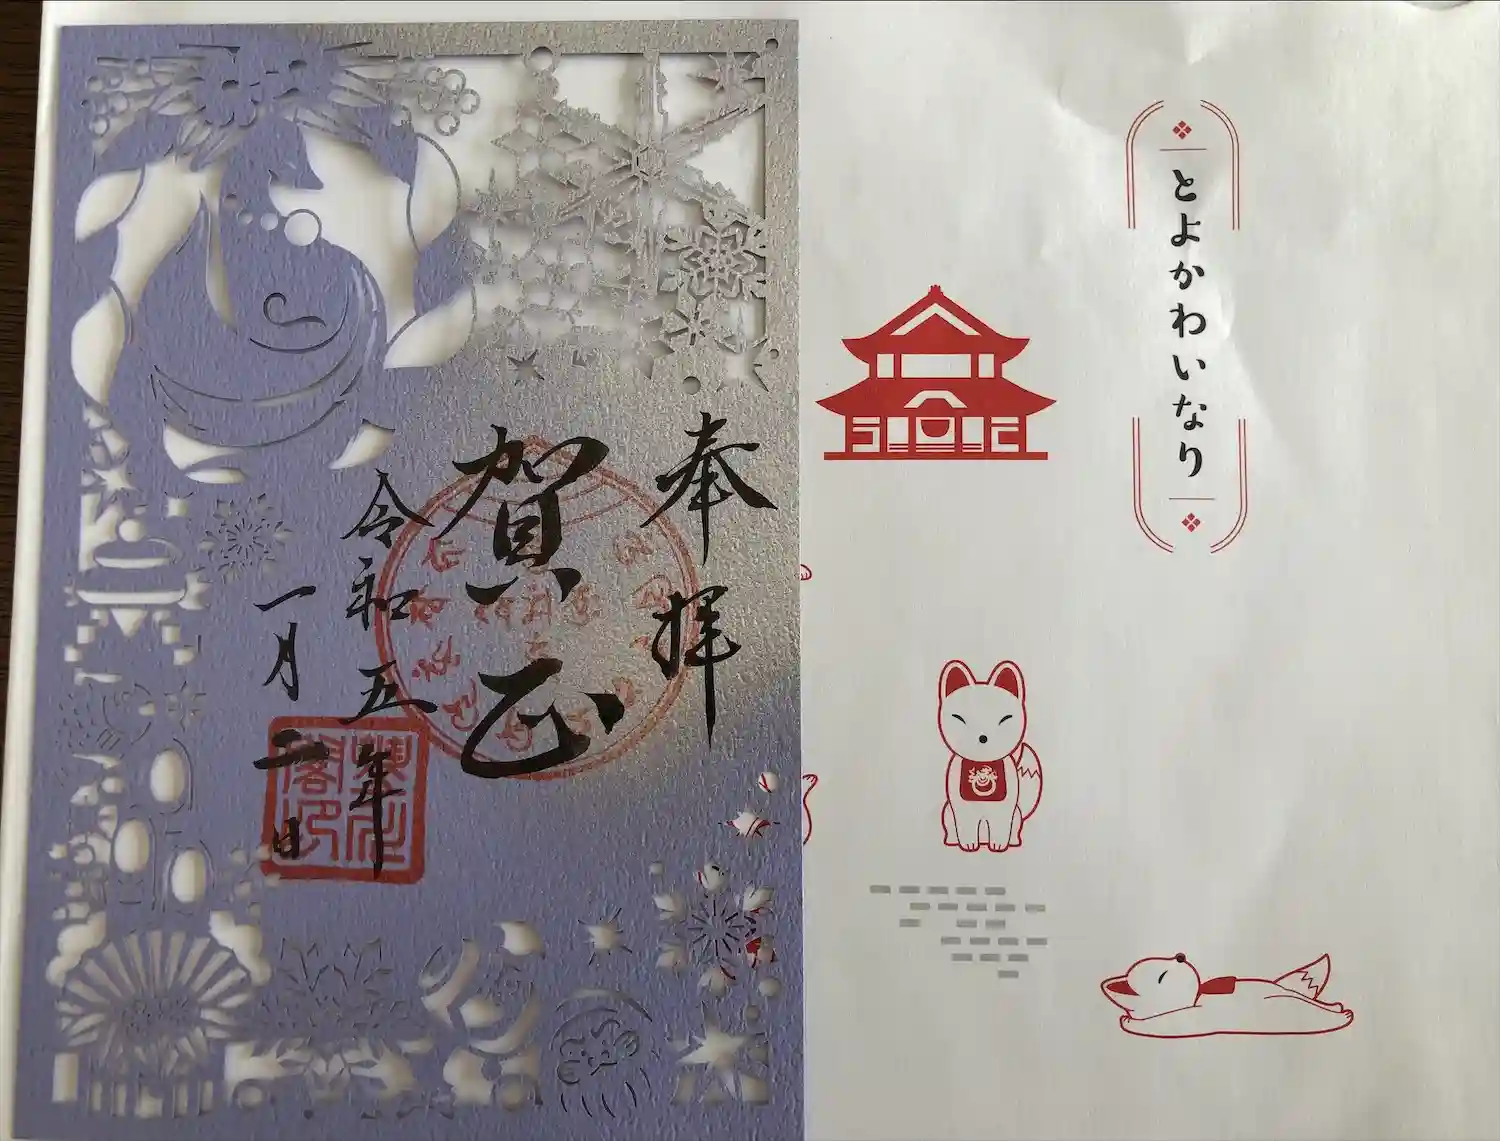 とよかわいなり
奉拝
賀正
令和五年
一月二日